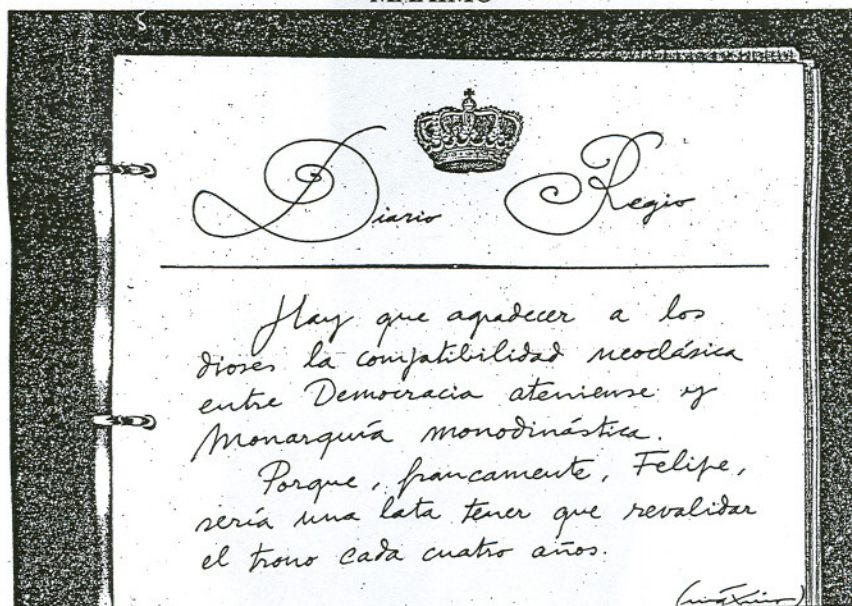 MÁXIMO
Diario Regio
Hay que agradecer a los
dioses la compatibilidad neoclásica
entre Democracia ateniense y
Monarquía monodinástica.
Porque, francamente, Felipe,
sería una lata tener que revalidar
el trono cada cuatro años.
(máximo)